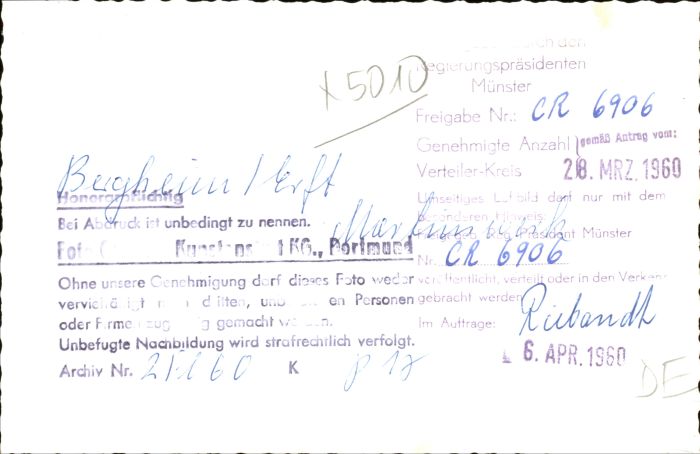 x 5010
Regierungspräsidenten
Münster
Freigabe Nr.: CR 6906
Genehmigte Anzahl (gemäß Antrag vom:
Verteiler-Kreis 28. MRZ. 1960
Bergheim / Erft
Honorarpflichtig
Bei Abdruck ist unbedingt zu nennen.
Foto Kunstanstalt KG., Dortmund
Ohne unsere Genehmigung darf dieses Foto weder
vervielfältigt noch Dritten, und Personen
oder Firmen gemacht werden.
Unbefugte Nachbildung wird strafrechtlich verfolgt.
Archiv Nr. 60 K p 17
Umseitiges Luftbild darf nur mit dem
besonderen Hinweis:
Freigeg. Reg Präsident Münster
Nr. CR 6906
veröffentlicht, verteilt oder in den Verkehr
gebracht werden
Im Auftrage:
6. APR. 1960
DE